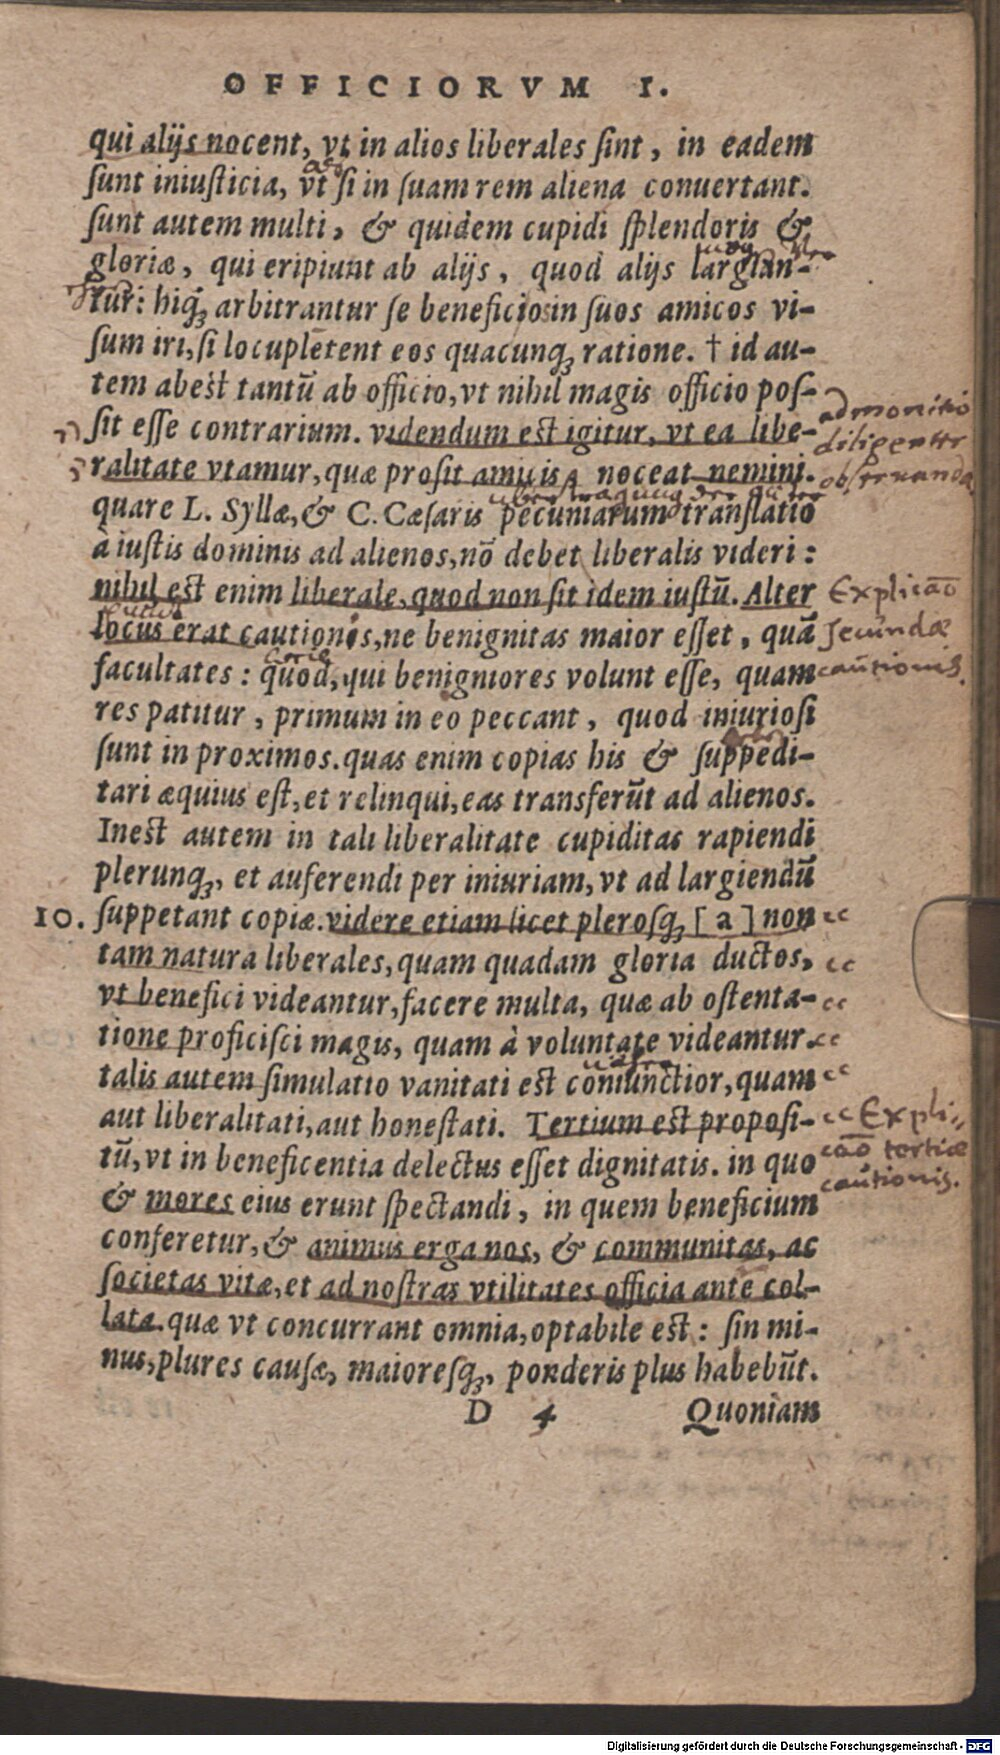 OFFICIORVM I.
qui alijs nocent, vt in alios liberales ſint, in eadem
ac
ſunt iniuſticia, vt ſi in ſuam rem aliena conuertant.
ſunt autem multi, & quidem cupidi ſplendoris &
gloriæ, qui eripiunt ab alijs, quod alijs largian-
tur: hiq́ꝫ arbitrantur ſe beneficios in ſuos amicos vi-
ſum iri, ſi locupletent eos quacunqꝫ ratione. † id au-
tem abest tantũ ab officio, vt nihil magis officio poſ-
ſit eſſe contrarium. videndum est igitur, vt ea libe-
admonitio
diligenter
obſeruanda
ralitate vtamur, quæ proſit amicis, noceat nemini.
quare L. Syllæ, & C. Cæſaris pecuniarum tranſlatio
à iuſtis dominis ad alienos, nõ debet liberalis videri:
nihil est enim liberale, quod non ſit idem iuſtũ. Alter
Explicão
ſecundæ
cautionis.
locus erat cautionis, ne benignitas maior eſſet, quã
facultates: quod, qui benigniores volunt eſſe, quam
res patitur, primum in eo peccant, quod iniurioſi
ſunt in proximos. quas enim copias his & ſuppedi-
tari æquius eſt, et relinqui, eas transferũt ad alienos.
Inest autem in tali liberalitate cupiditas rapiendi
plerunqꝫ, et auferendi per iniuriam, vt ad largiendũ
10. ſuppetant copiæ. videre etiam licet pleroſqꝫ [a] non
tam natura liberales, quam quadam gloria ductos,
vt benefici videantur, facere multa, quæ ab oſtenta-
tione proficiſci magis, quam à voluntate videantur.
talis autem ſimulatio vanitati est coniunctior, quam
aut liberalitati, aut honeſtati. Tertium est propoſi-
Expli-
cão tertiæ
cautionis.
tũ, vt in beneficentia delectus eſſet dignitatis. in quo
& mores eius erunt ſpectandi, in quem beneficium
conferetur, & animus erga nos, & communitas, ac
ſocietas vitæ, et ad noſtras vtilitates officia ante col-
lata. quæ vt concurrant omnia, optabile est: ſin mi-
nus, plures cauſæ, maioreſqꝫ, ponderis plus habebũt.
D 4 Quoniam
Digitalisierung gefördert durch die Deutsche Forschungsgemeinschaft - DFG